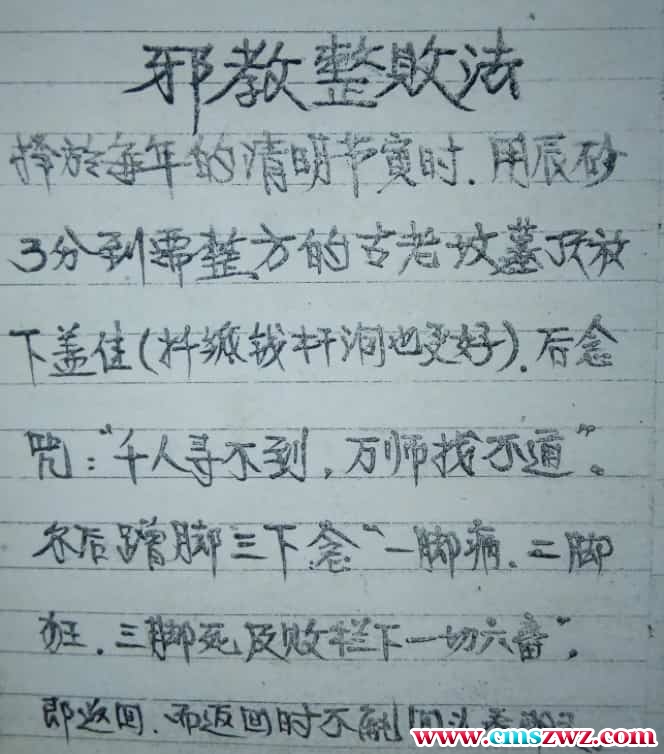 邪教整败法
择於每年的清明节寅时.用辰砂
3分到需整方的古老坟墓顶放
下盖住(扦纸钱杆洞也更好).后念
咒:“千人寻不到,万师找不通”。
尔后蹭脚三下念“一脚病.二脚
狂.三脚死及败栏下一切六畜”,
即返回.而返回时不能回头
www.cmszwz.com